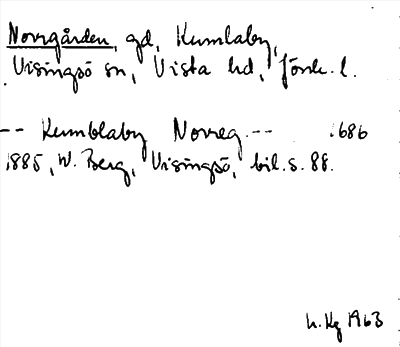 Norrgården, gd, Kumlaby,
Visingsö sn, Vista hd, Jönk. l.
-- Kumblaby Norreg -- 1686
1885, W. Berg, Visingsö, bil. s. 88.
h. Kg 1963